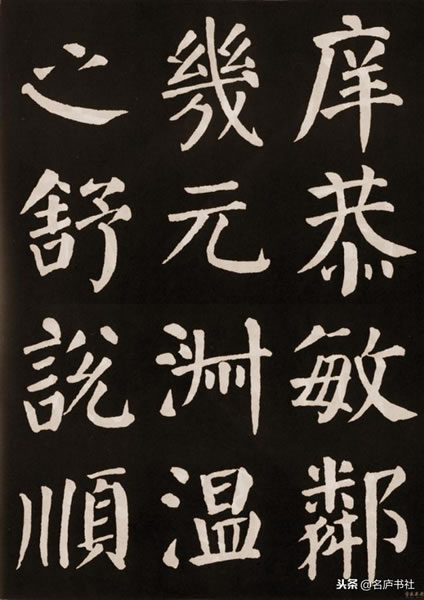 庠恭敏鄰
幾元淵温
之舒說順
头条 @名庐书社